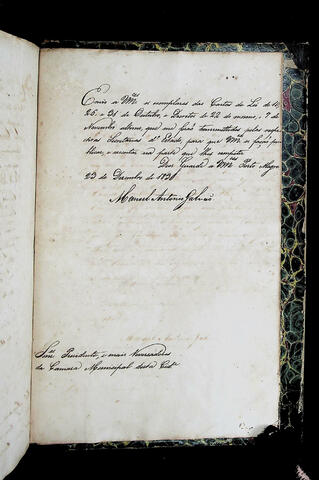 Envio a Vmces os exemplares das Cartas de Lei de 11,
25, e 31 de Outubro, e Decretos de 22 do mesmo, e 7 de
Novembro ultimo, que me são transmittidos pelas respe-
ctivas Secretarias d'Estado, para que Vmces os fação pu-
blicar, e executar na parte que lhes competir.
Deos Guarde a Vmces Porto Alegre
23 de Dezembro de 1831.
Manoel Antonio Galvão
Snres Presidente, e mais Vereadores
da Camara Municipal desta Cide